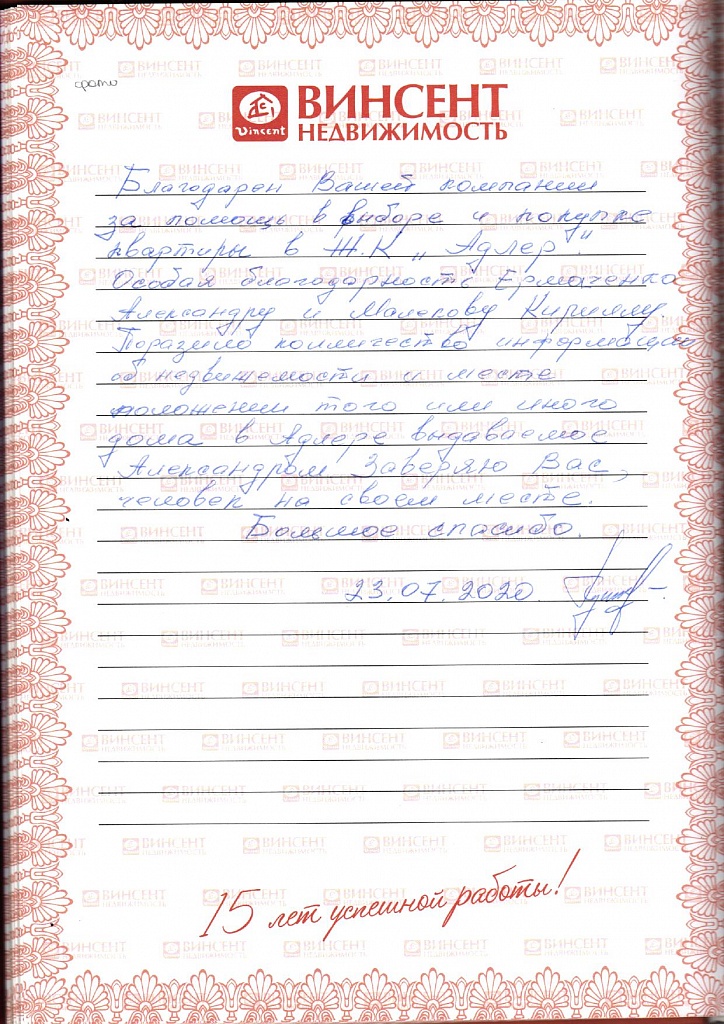 фото
Vincent
ВИНСЕНТ
НЕДВИЖИМОСТЬ
Благодарен Вашей компании
за помощь в выборе и покупке
квартиры в Ж.К „Адлер".
Особая благодарность Ермаченко
Александру и Малекову Кириллу.
Поразило колличество информации
об недвижемости и месте
положении того или иного
дома в Адлере выдаваемое
Александром. Заверяю Вас,
человек на своем месте.
Большое спасибо.
23.07.2020
15 лет успешной работы!